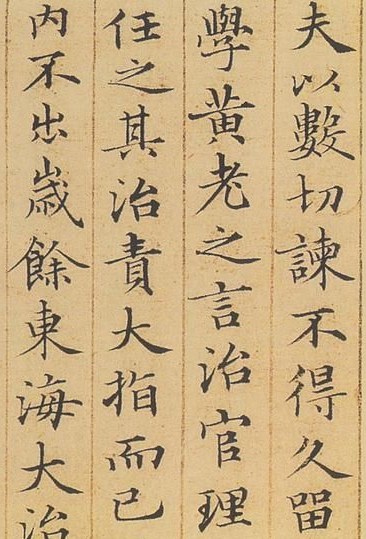 夫以數切諫不得久留
學黃老之言治官理
任之其治責大指而已
內不出歲餘東海大治